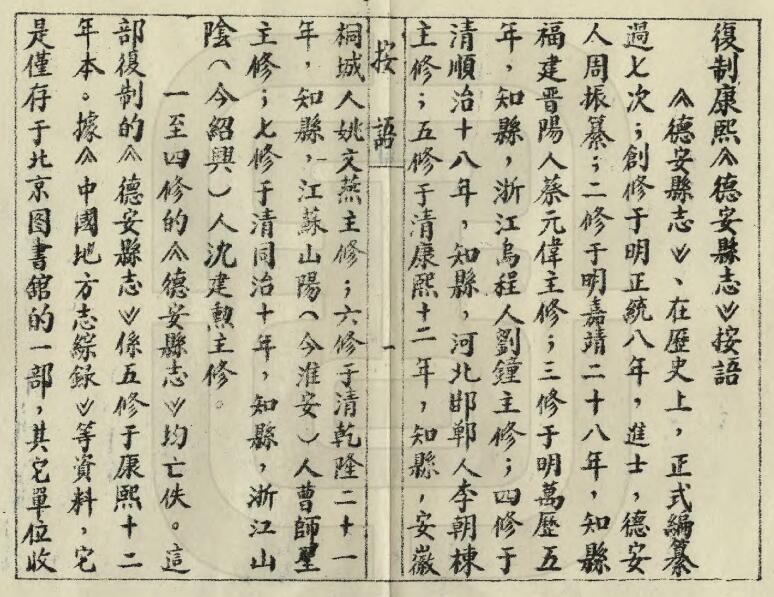 復制康熙《德安縣志》按語
《德安縣志》、在歷史上，正式編纂
過七次；創修于明正統八年，進士，德安
人周振纂；二修于明嘉靖二十八年，知縣
福建晋陽人蔡元偉主修；三修于明萬歷五
年，知縣，浙江烏程人劉鐘主修；四修于
清順治十八年，知縣，河北邯鄲人李朝棟
主修；五修于清康熙十二年，知縣，安徽
按語
一
桐城人姚文燕主修；六修于清乾隆二十一
年，知縣，江蘇山陽（今淮安）人曹師聖
主修；七修于清同治十年，知縣，浙江山
陰（今紹興）人沈建勲主修。
一至四修的《德安縣志》均亡佚。這
部復制的《德安縣志》係五修于康熙十二
年本。據《中國地方志綜録》等資料，它
是僅存于北京图書舘的一部，其它單位收